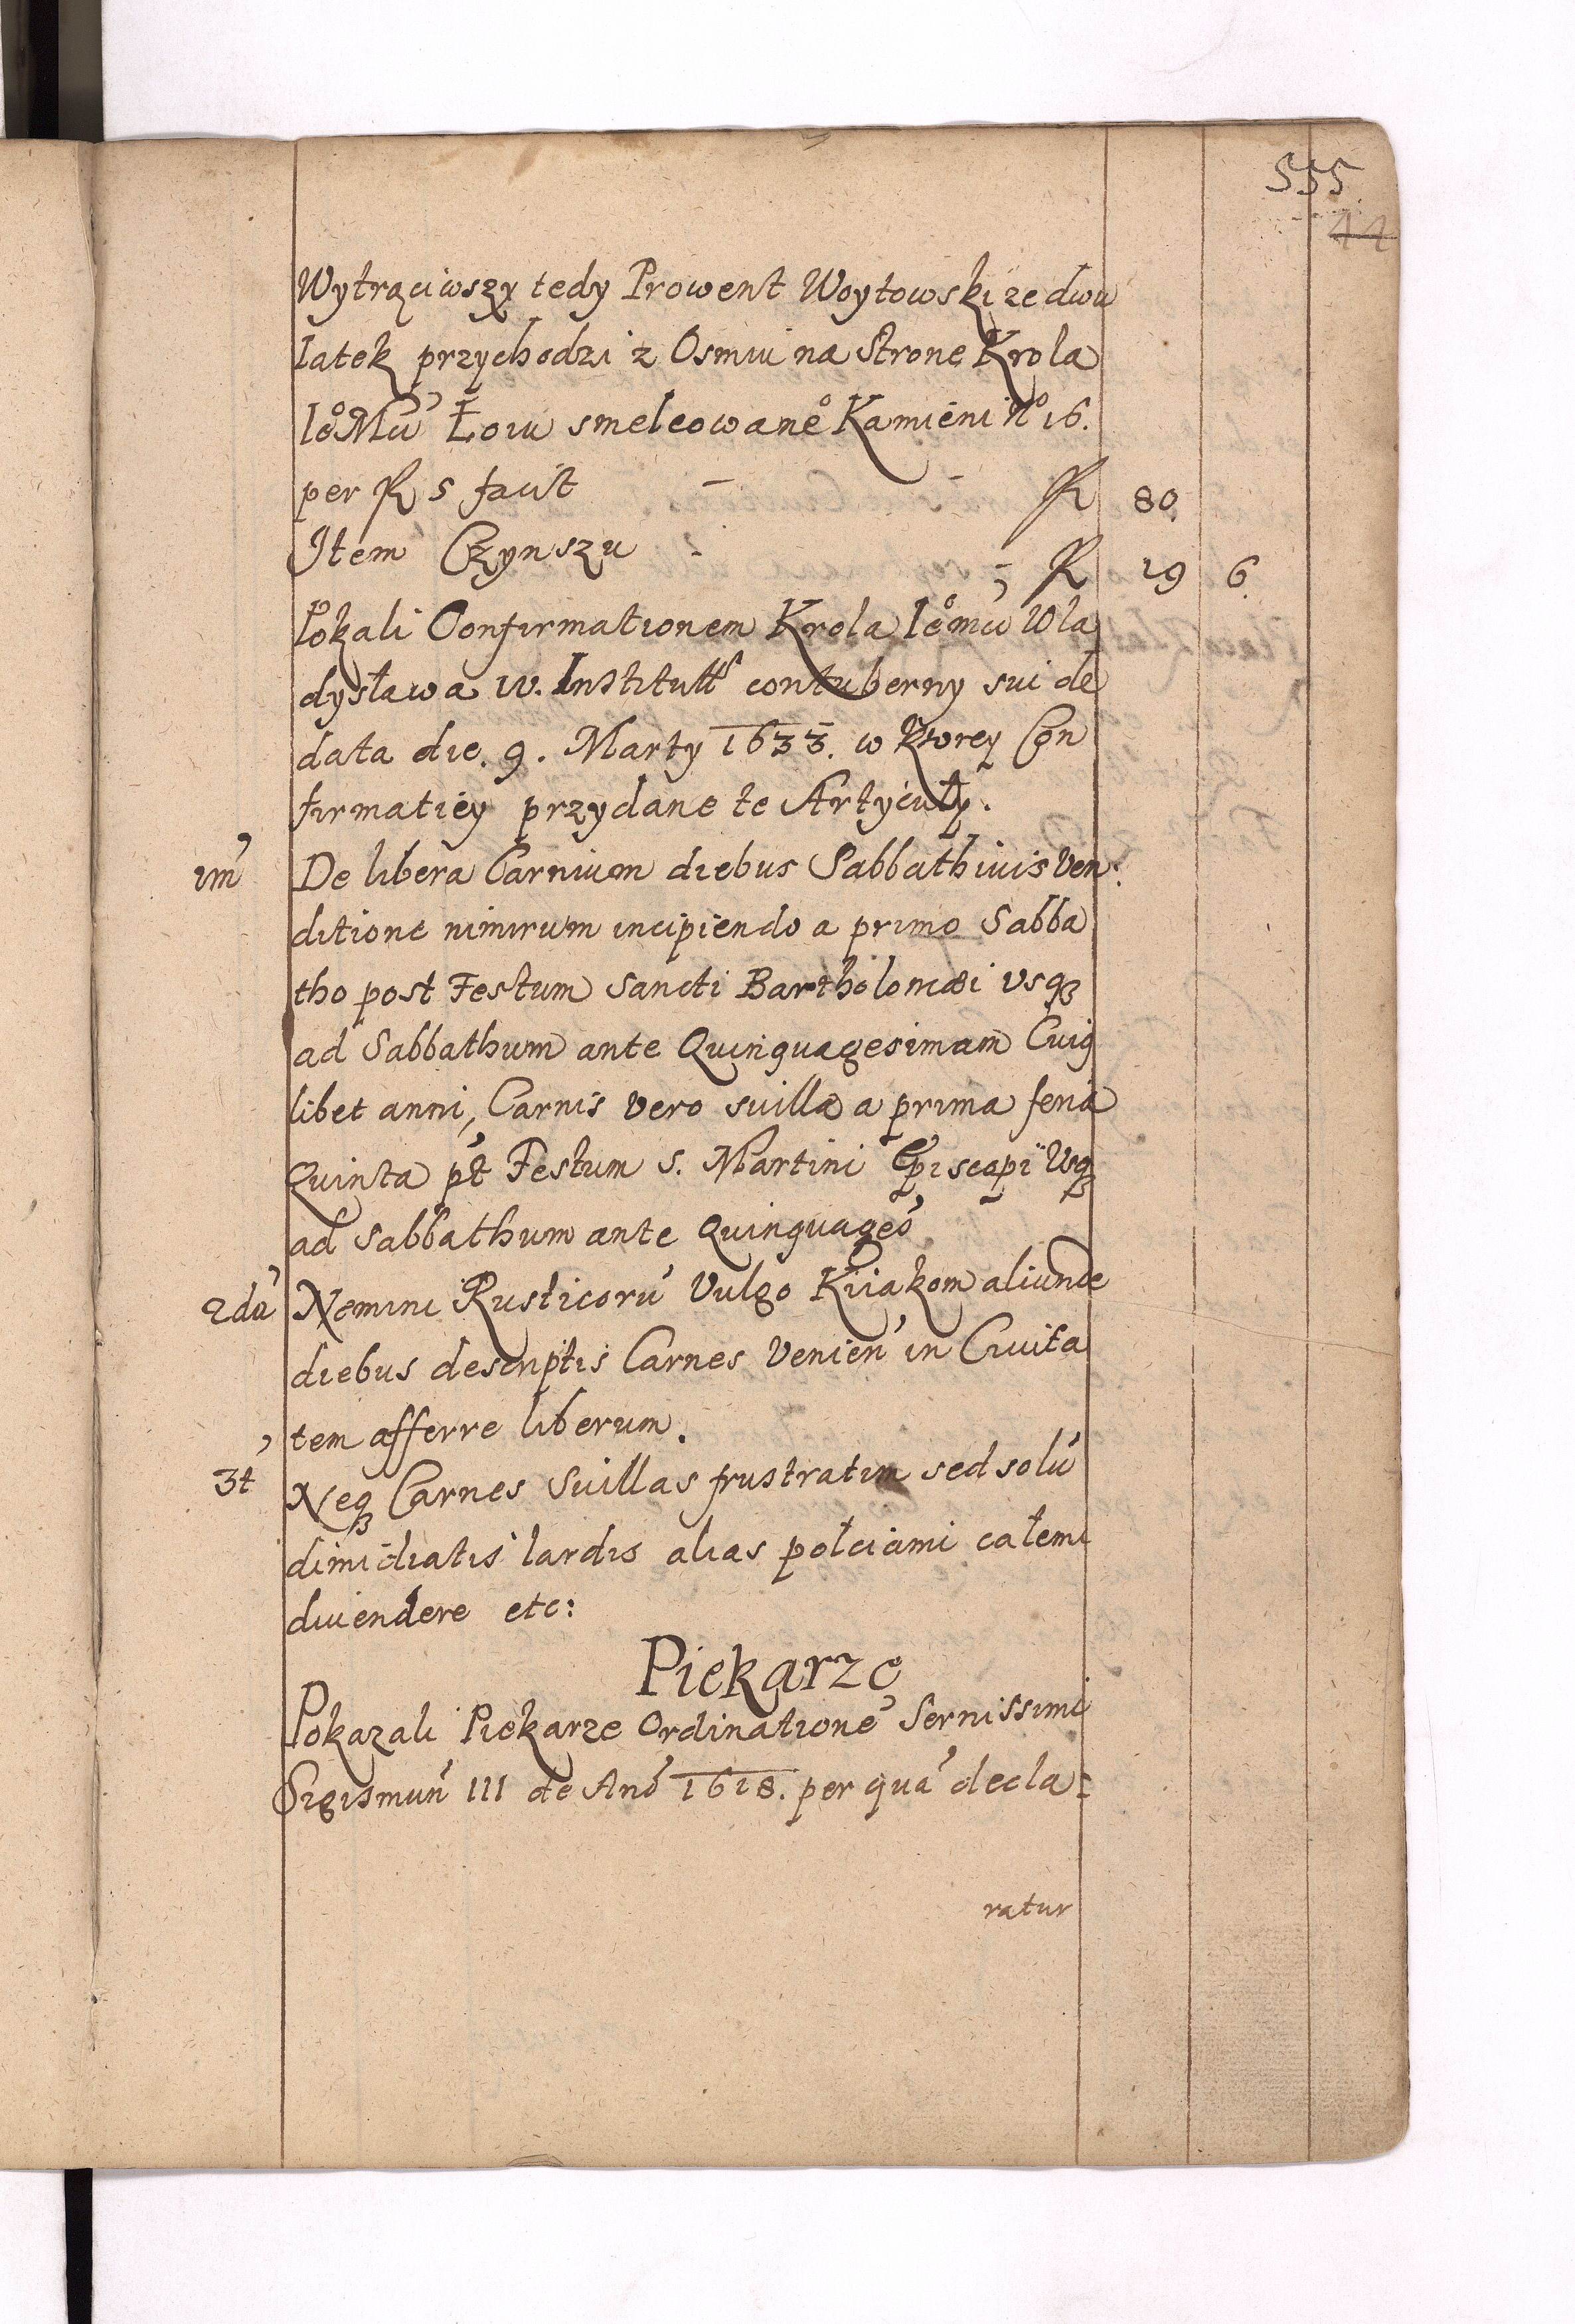 555
44
Wytrąciwszy tedy Prowent Woytowski ze dwu
Iatek przychodzi z Osmiu na Strone Krola
Ie͒Mci Łoiu smelcowane͒ Kamieni N͒ 16.
per R 5 facit - - R 80.
Item Czynszu - - R 19 6.
Pokali Confirmationem Krola Ie͒mci Wła
dysława IV. Institutt contuberny sui de
data die. 9. Marty 1633. w Ktorey Con
firmatiey przydane te Artyculy.
1m De libera Carnium diebus Sabbathiuis Ven:
ditione nimirum incipiendo a primo Sabba
tho post Festum Sancti Bartholomæi vsqꝫ
ad Sabbathum ante Quinquagesimam Cuig
libet anni, Carnis vero suilla a prima feria
Quinta pt Festum S. Martini Episcopi Vsqꝫ
ad Sabbathum ante Quinquages
2dū Nemini Rusticorū Vulgo Kiiakom aliunde
diebus descriptis Carnes Venien in Ciuita
tem afferre liberum.
3t Neqꝫ Carnes Suillas frustratim sed solū
dimidiatis lardis alias połciami całemi
diuendere etc:
Piekarze
Pokazali Piekarze Ordinatione Sernissimi
Sigismun III de Anō 1618. per quā decla:
ratur